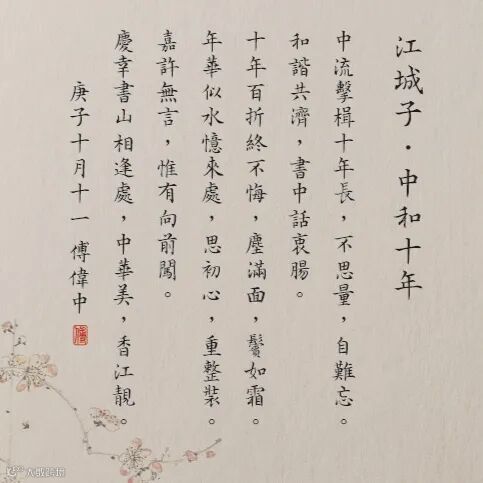 江城子·中和十年
中流擊楫十年長，不思量，自難忘。
和諧共濟，書中話衷腸。
十年百折終不悔，塵滿面，鬢如霜。
年華似水憶來處，思初心，重整裝。
嘉許無言，惟有向前闖。
慶幸書山相逢處，中華美，香江靚。
庚子十月十一 傅偉中